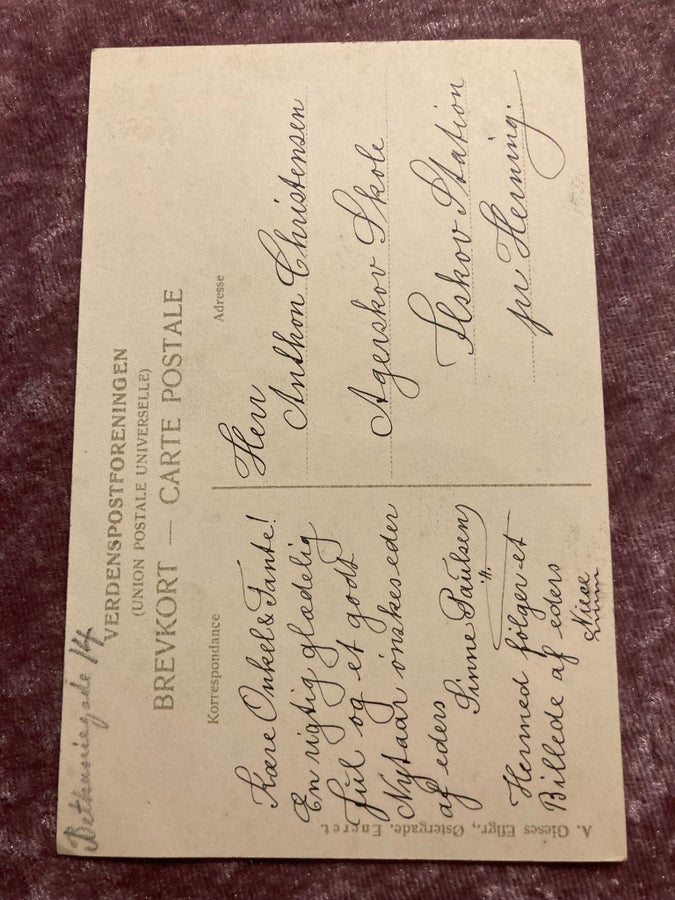 Bethaniegade 14
VERDENSPOSTFORENINGEN
(UNION POSTALE UNIVERSELLE)
BREVKORT — CARTE POSTALE
Korrespondance
Kære Onkel & Tante!
En rigtig glædelig
Jul og et godt
Nytaar ønskes eder
af eders
Sinne Paulsen
Hermed følger et
Billede af eders
Niece
Adresse
Herr
Anthon Christensen
Agerskov Skole
Ilskov Station
pr Herning.
A. Gieses Eftgr., Østergade, Eneret.